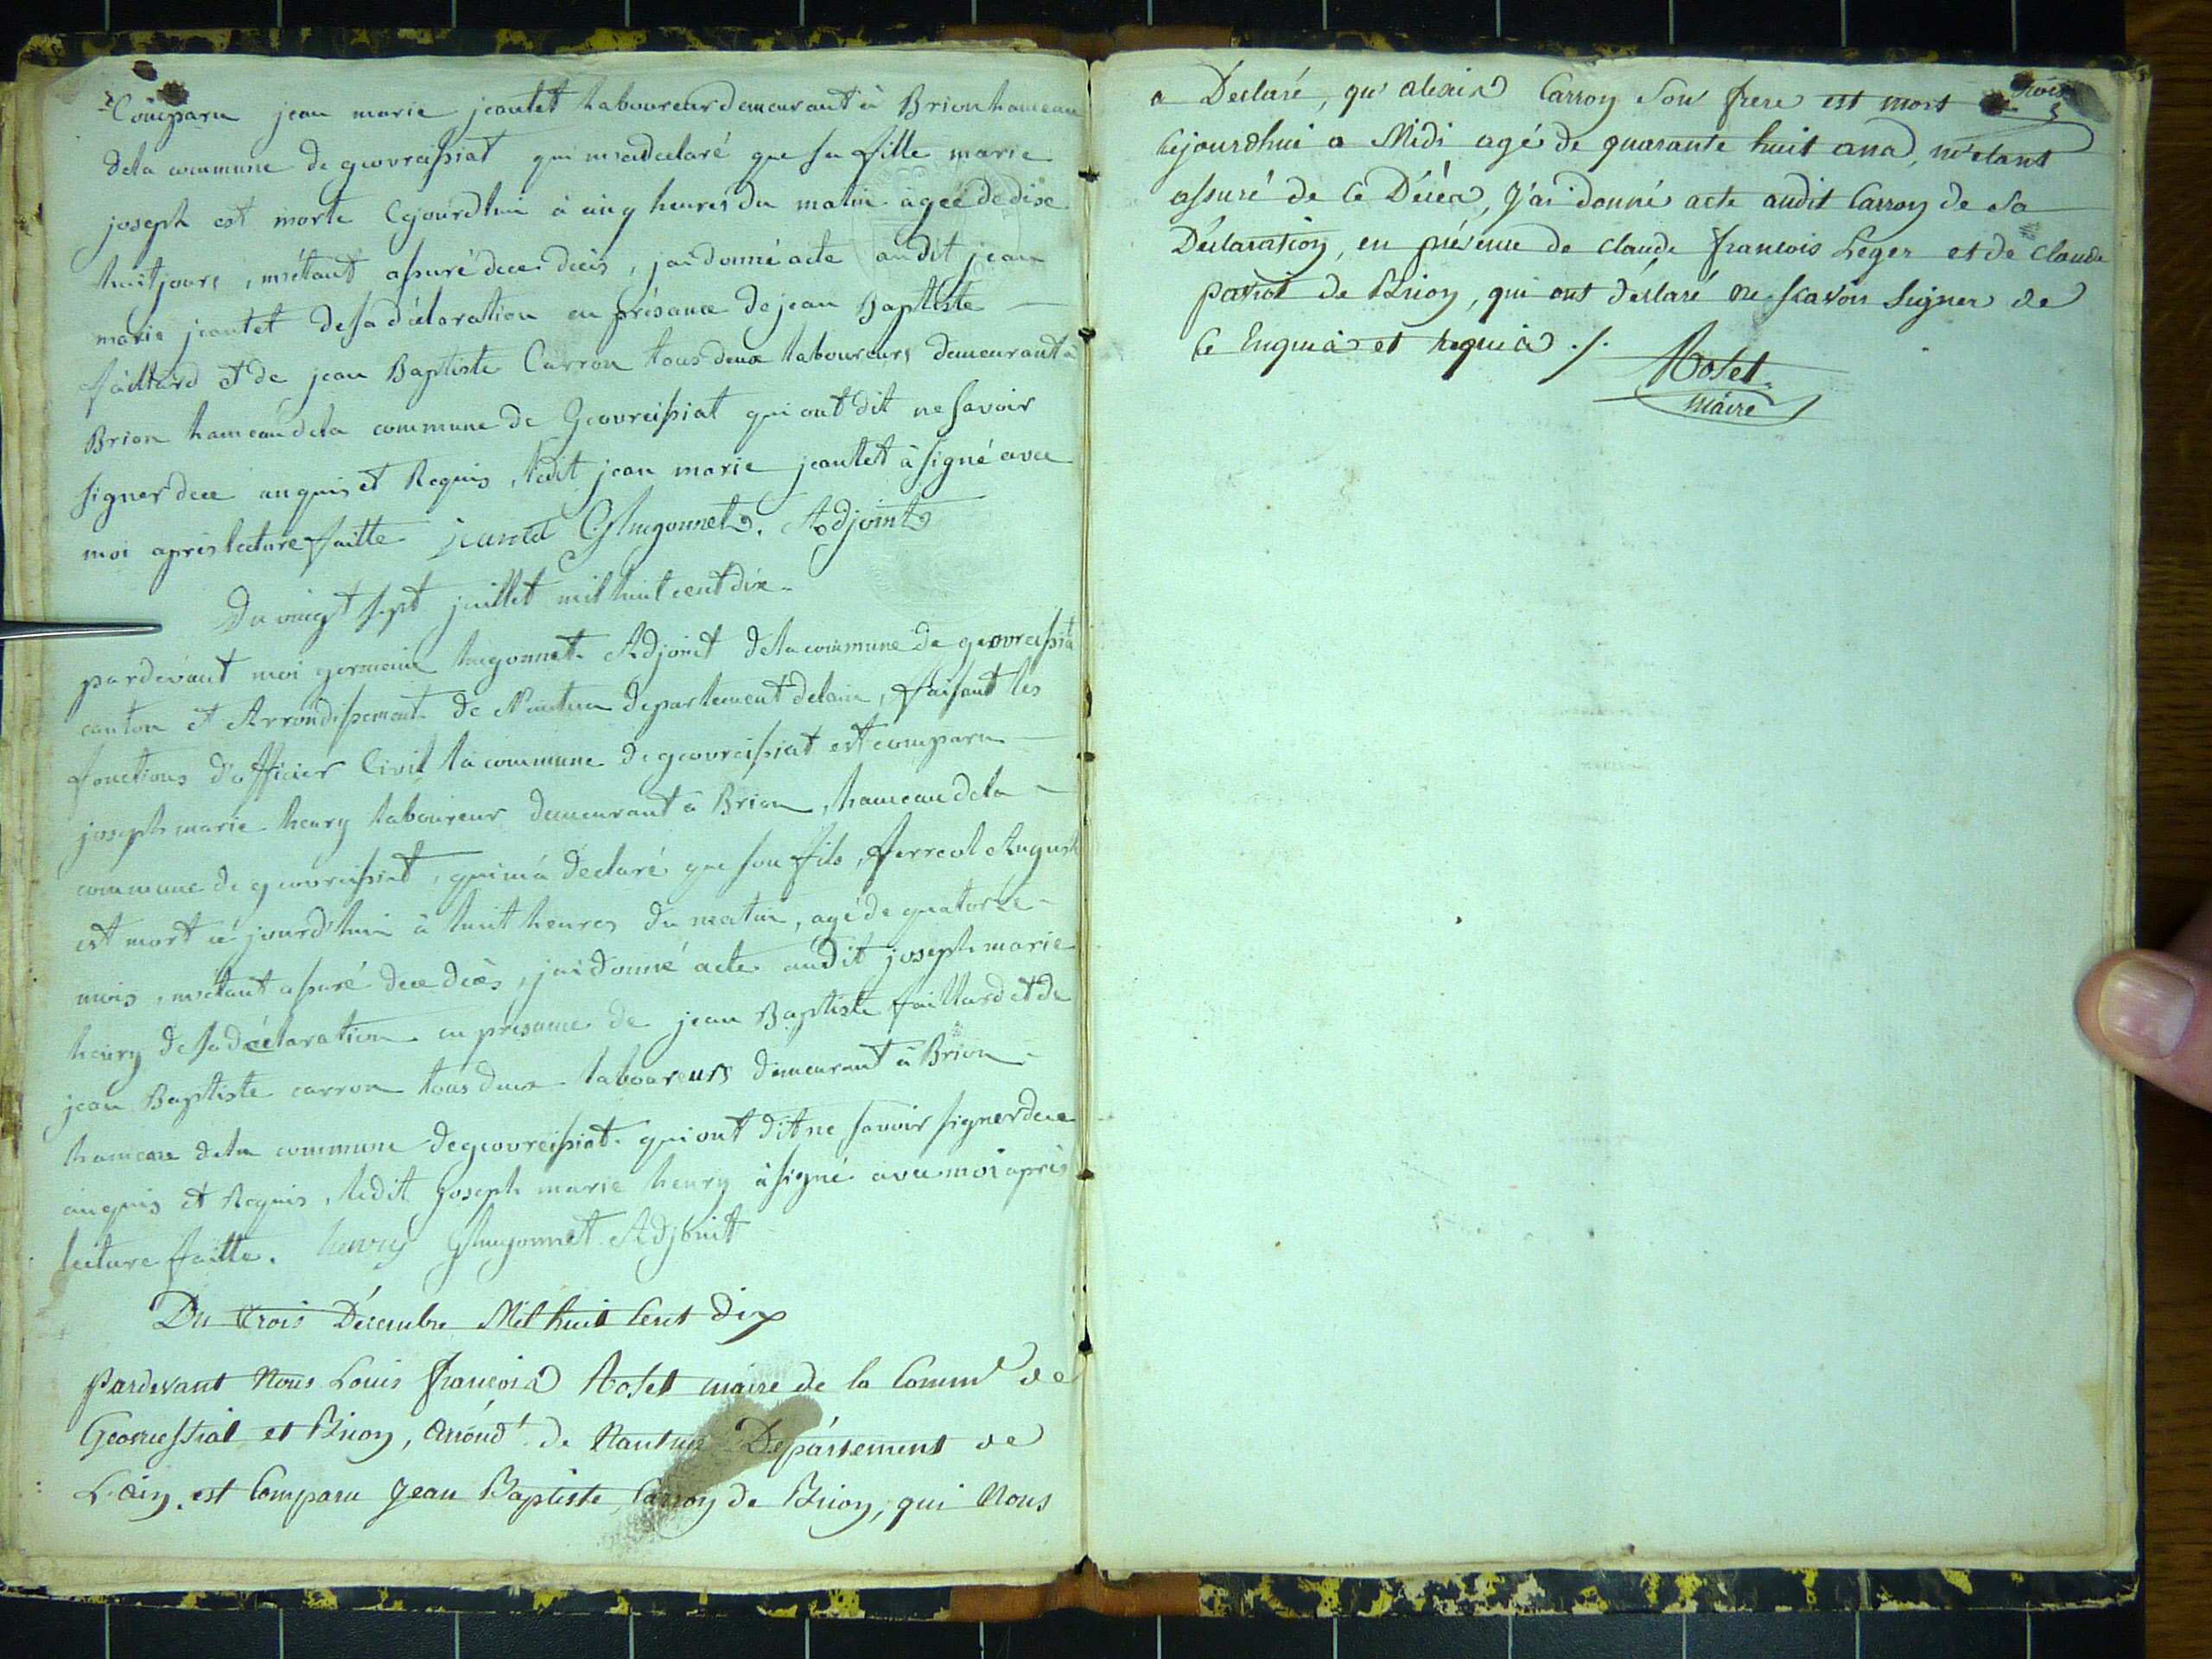 Comparu jean marie jeantet laboureur demeurant à Brion hameau
dela commune de geovreissiat qui m'a declaré que sa fille marie
joseph est morte Cejourdhui à cinq heures du matin agée de dixe
huit jours, m'étant assuré dece decès, jai donné acte audit jean
marie jeantet de sa déclaration en présance de jean Baptiste
faillard et de jean Baptiste Carron tous deux laboureurs demeurant à
Brion hameau dela commune de Geovreissiat qui ont dit ne savoir
signer dece anquis et Requis, ledit jean marie jeantet à signé avec
moi après lecture faitte jeantet GHugonnet. Adjoint
Du vingt sept juillet mil huit cent dix
pardevant moi germain hugonnet Adjoint dela commune de geovreissiat
canton et Arrondissement de Nantua departement delain, faisant les
fonctions d'officier Civil la commune de geovreissiat est comparu
joseph marie henry laboureur demeurant à Brion, hameau dela
commune de geovreissiat, qui m'à declaré que son fils, ferreol August
est mort cé jourd'hui à huit heures du matin, agé de quatorze
mois, m'étant assuré dece decès, j'ai donné acte audit joseph marie
henry de sa déclaration en presance de jean Baptiste faillard et de
jean Baptiste carron tous deux laboureurs demeurant à Brion
hameau dela commune de geovreissiat qui ont dit ne savoir signer dece
anquis et Requis, ledit joseph marie henry à signé avec moi après
lecture faitte. henry Ghugonnet Adjoint
Du trois Décembre Mil huit Cent dix
Pardevant Nous Louis françois Roset maire de la Comm.e de
Geovressiat et Brion, Arrond.t de Nantua Département de
L'ain, est Comparu Jean Baptiste Carron de Brion, qui Nous
trois
3
a Déclaré, qu'alexis Carron Son frere est mort
Cejourdhui a Midi agé de quarante huit ans, m'etant
assuré de ce Décés, J'ai donné acte audit Carron de Sa
Déclaration, en présence de claude francois Leger et de Claude
Pariot de Brion, qui ont déclaré ne scavoir Signer de
Ce Enquis et requis ./.
Roset
Maire